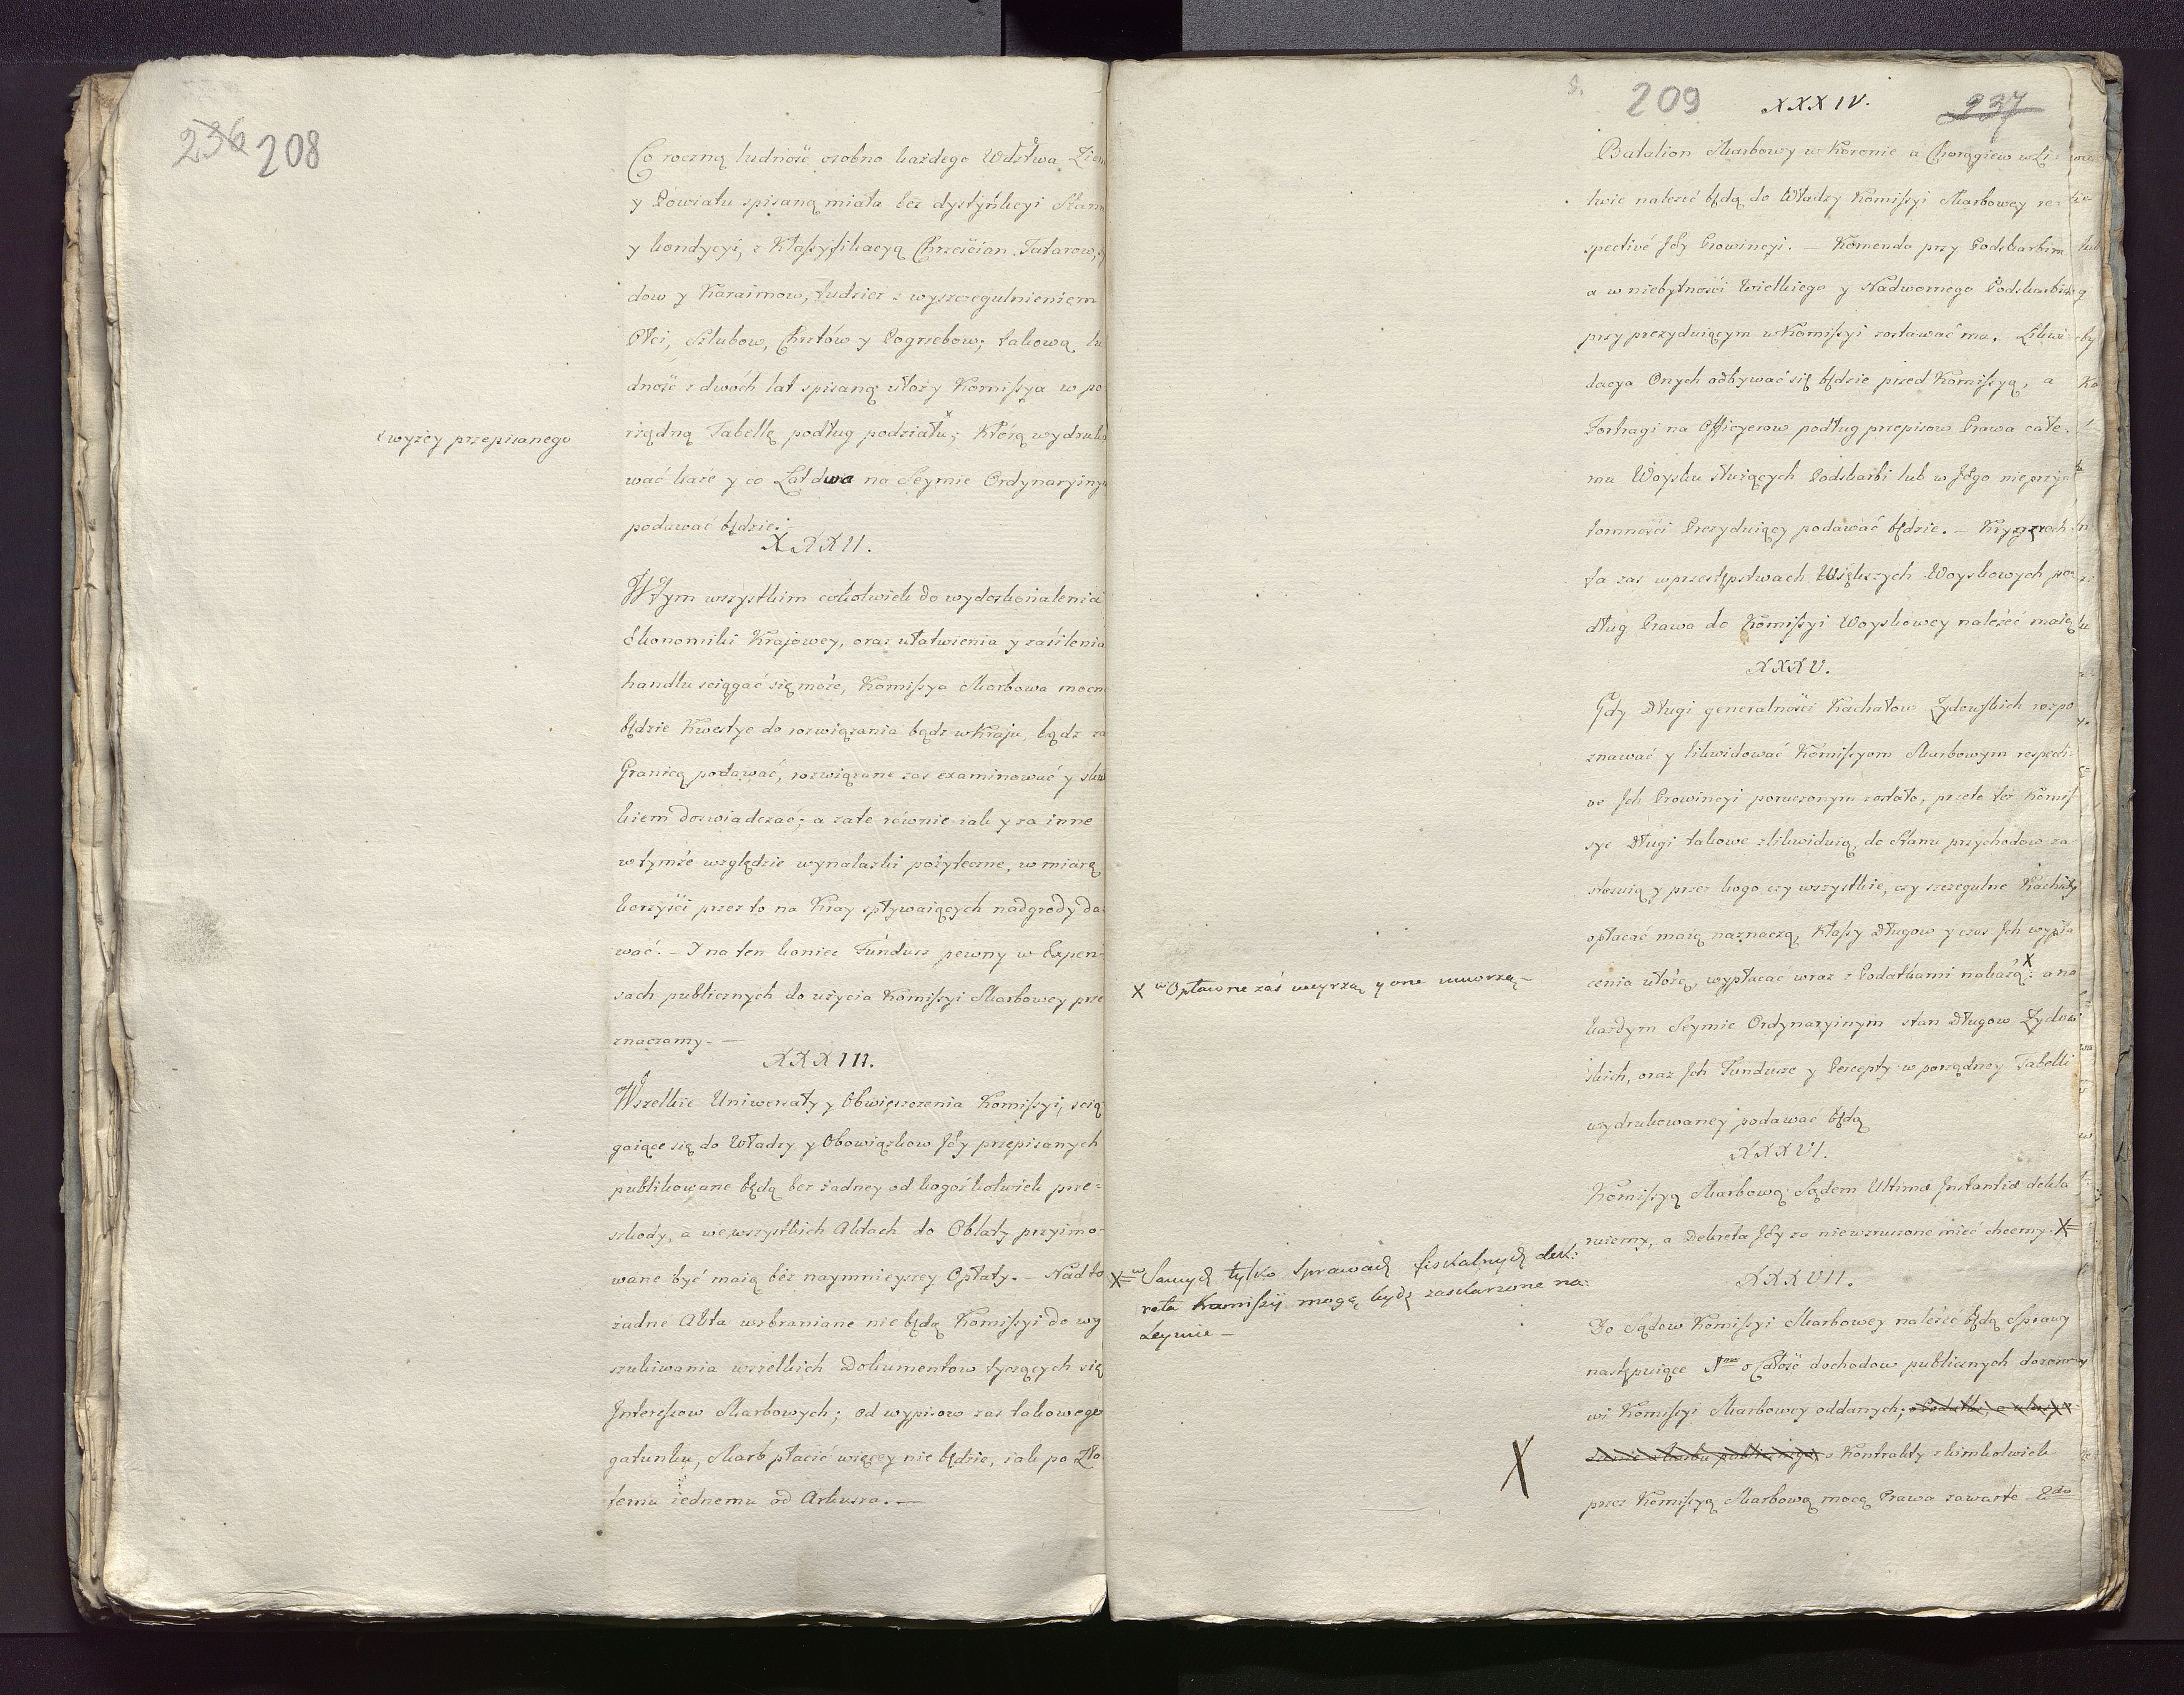 236 208
Co roczną ludność osobno każdego Wdztwa, Ziem
y Powiatu spisaną miała bez dystynkcyi Stanu
y kondycyi, z Klassyfikacyą Chrześcian, Tatarow, Ży
dow y Karaimow, tudziez z wyszczegulnieniem
Płci, Szlubow, Chrztów y Pogrzebow; takową lu
dność z dwóch lat spisaną ułoży Komissya w po
rządną Tabellę podług podziału x; Którą wydruko
x wyżey przepisanego
wać każe y co Lat dwa na Seymie Ordynaryinym
podawać będzie.-
XXXII.
W tym wszystkim cokolwiek do wydoskonalenia
Ekonomiki Krajowey, oraz ułatwienia y zasilenia
handlu sciągać się może, Komissya Skarbowa mocna
będzie Kwestye do rozwiązania bądz w Kraju, bądz za
Granicą podawać, rozwiązane zas examinować y skut
kiem doswiadczać; a za te równie iak y za inne
w tymże względzie wynalazki pożyteczne, w miarę
korzyści przez to na Kray spływaiących nadgrody da-
wać. - I na ten koniec Fundusz pewny w Expen-
sach publicznych do użycia Komissyi Skarbowey prze
znaczamy. -
XXXIII.
Wszelkie Uniwersały y Obwieszczenia Komissyi, scią
gaiące się do Władzy y Obowiązkow Jey przepisanych
publikowane będą bez żadney od kogożkolwiek prze-
szkody, a we wszystkich Aktach do Oblaty przyimo-
wane być maią bez naymnieyszey Opłaty. - Nadto
żadne Akta wzbraniane nie będą Komissyi do wy
szukiwania wszelkich Dokumentow tyczących się
Interessow Skarbowych; od wypisow zas takowego
gatunku, Skarb płacić więcey nie będzie, iak po Zło
temu iednemu od Arkusza. -
S. 209 XXXIV. 237
Batalion Skarbowy w Koronie a Chorągiew w Li-
twie należeć będą do Władzy Komissyi Skarbowey re-
spectivé Jey Prowincyi. - Komenda przy Podskarbim
a w niebytności Wielkiego y Nadwornego Podskarbiego
przy prezyduiącym w Komissyi zostawać ma. Likwi-
dacya Onych odbywać się będzie przed Komissyą, a
Fortragi na Officyerow podług przepisow Prawa całe-
mu Woysku służących Podskarbi lub w Jego nieprzy-
tomności Prezyduiący podawać będzie. - Krygzrech-
ta zas w przestępstwach Większych Woyskowych po-
dług Prawa do Komissyi Woyskowey należeć maią
XXXV.
Gdy Długi generalności Kachałow Żydowskich rozpo
znawać y likwidować Komissyom Skarbowym respecti-
ve Jch Prowincyi poruczonym zostało, przeto też Komis-
sye Długi takowe zlikwiduią, do Stanu przychodow za-
stosuią y przez kogo czy wszystkie, czy szczegulne Kachały
opłacać maią naznaczą, Klassy Długow y czas Jch wypła
cenia ułożą, wypłacac wraz z Podatkami nakażą X: a na
X w Opłacone zaś y one umorzą -
każdym Seymie Ordynaryinym stan Długow Żydow
skich, oraz Jch Fundusze y Percepty w porządney Tabelli
wydrukowaney podawać będą
XXXVI.
Komissyą Skarbową Sądem Ultimæ Instantiæ dekla
ruiemy, a Dekreta Jey za niewzruszone mieć chcemy. X=
X= w Samych tylko sprawach fiskalnych dek:
reta Komissyi mogą bydź zaskarzone na:
Seymie -
XXXVII.
Do Sądow Komissyi Skarbowey należeć będą Sprawy
następuiące 1mo o Całość dochodow publicznych dozoro
wi Komissyi Skarbowey oddanych;
X o Kontrakty z kimkolwiek
przez Komissyą Skarbową mocą Prawa zawarte 2do